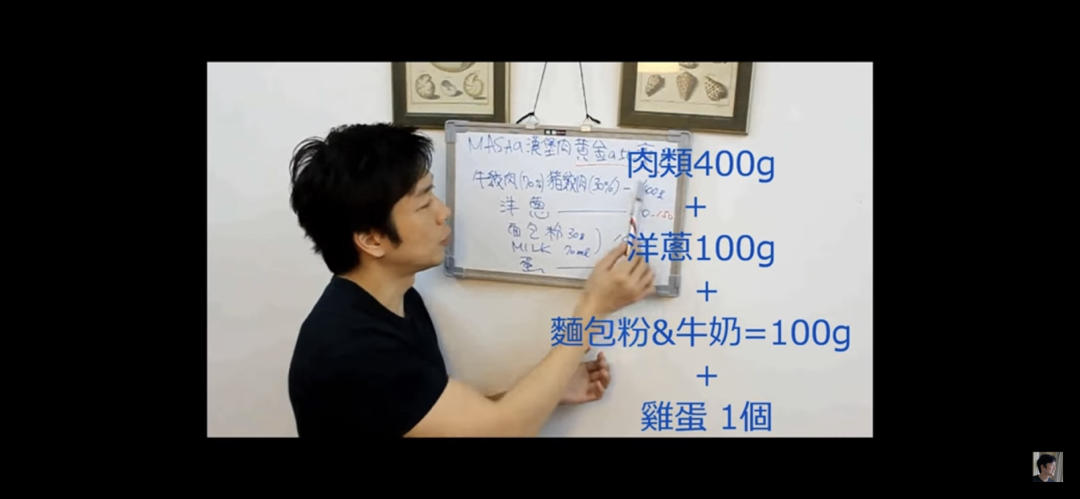 MASAの漢堡肉黃金
牛絞肉(70%)豬絞肉(30%)-400g
洋蔥
麵包粉 30g
MILK 70ml
蛋
肉類400g
+
洋蔥100g
+
麵包粉&牛奶=100g
+
雞蛋 1個